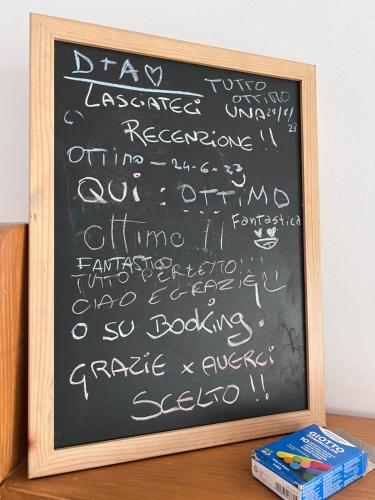 D + A ♡
TUTTO
OTTIMO
LASCIATECI UNA 27/8/23
RECENZIONE !!
OTTIMO - 24-6-23
QUI : OTTIMO
Fantastico
Ottimo !!
FANTASTICO
TUTTO PERFETTO!!!
CIAO E GRAZIE!!
O SU BOOKING!
GRAZIE x AVERCI
SCELTO !!
GIOTTO
GIOTTO
10